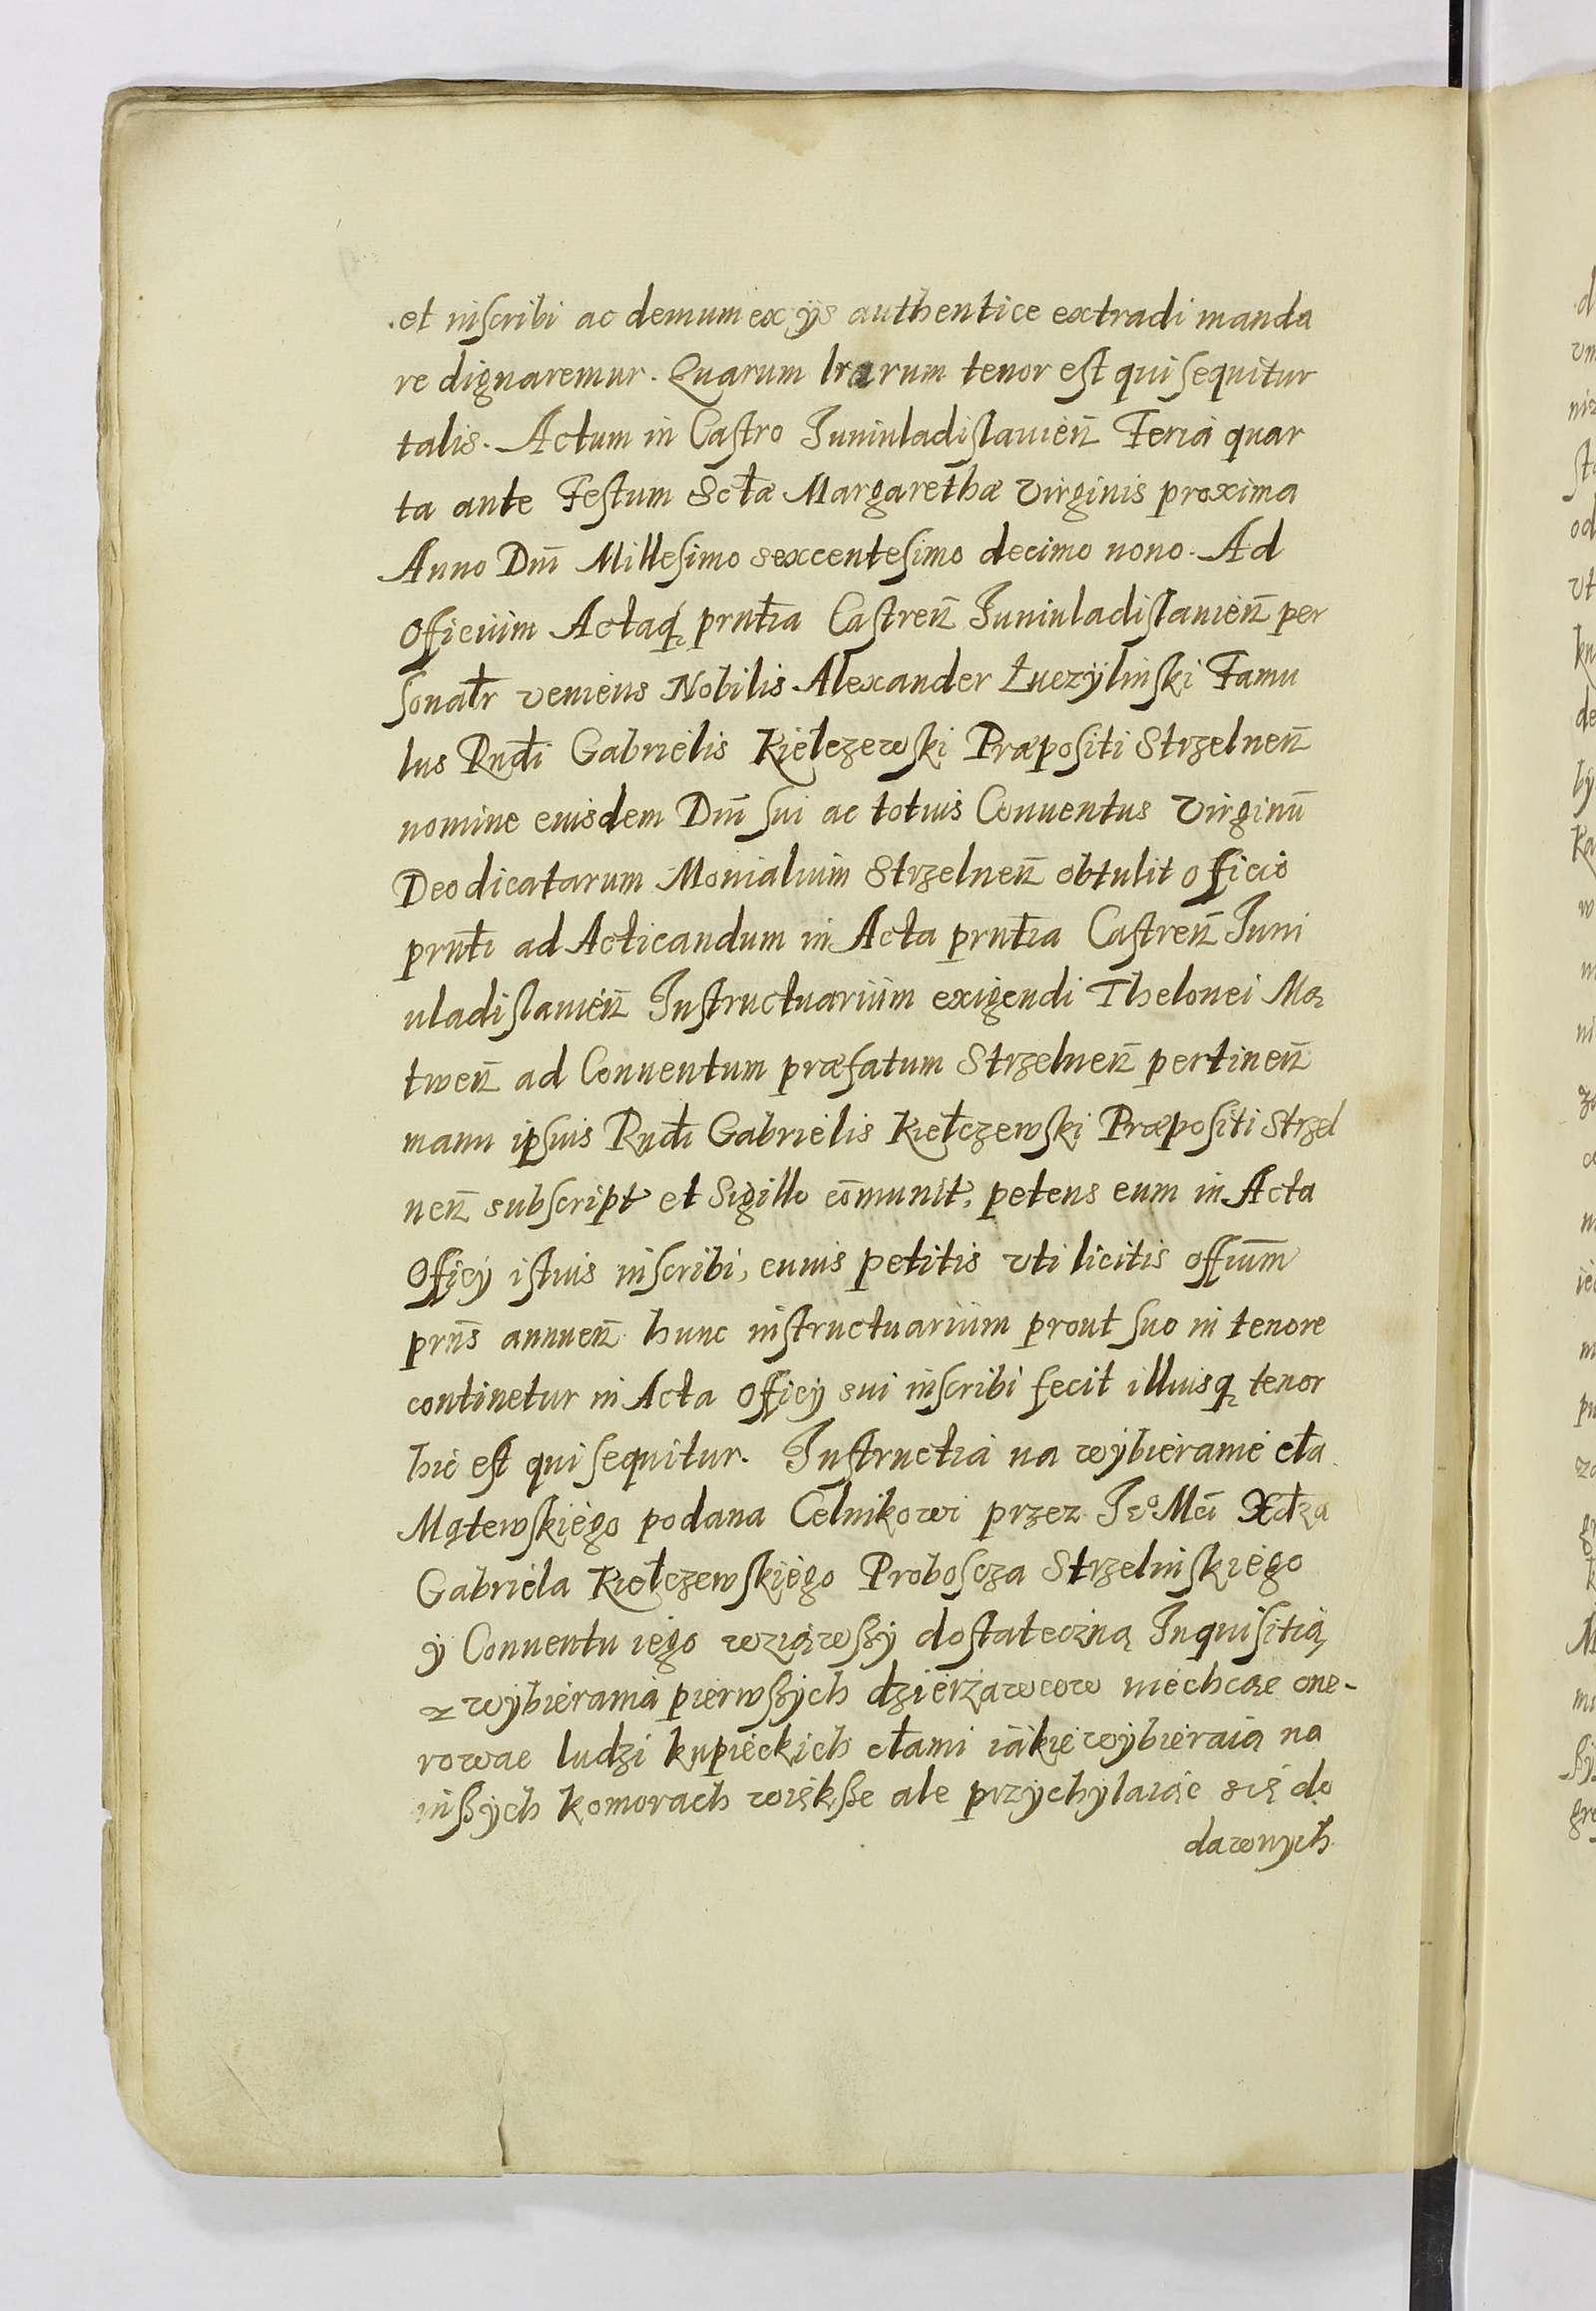 et inscribi ac demum ex ijs authentice extradi manda
re dignaremur. Quarum lrarum tenor est qui sequitur
talis. Actum in Castro Juniuladislauień Feria quar
ta ante Festum Sctæ Margarethæ Virginis proxima
Anno Dni Millesimo sexcentesimo decimo nono. Ad
Officium Actaq prntia Castreń Juniuladislauień per
sonatr veniens Nobilis Alexander Łuczÿlinski Famu
lus Rndi Gabrielis Kiełczewski Præpositi Strzelneń
nomine eiusdem Dni sui ac totius Conuentus Virginū
Deo dicatarum Monialium Strzelneń obtulit officio
prnti ad Acticandum in Acta prntia Castreń Juni
uladislauień Instructuarium exigendi Thelonei Mą
tweń ad Conuentum præfatum Strzelneń pertineń
manu ipsius Rndi Gabrielis Kiełczewski Præpositi Strzel
neń subscript et Sigillo cōmunit, petens eum in Acta
Officÿ istius inscribi, cuius petitis vti licitis officium
prns annueń hunc instructuarium prout suo in tenore
continetur in Acta Officÿ sui inscribi fecit illiusq tenor
hic est qui sequitur. Instructia na wÿbieranie cła
Mątewskiego podana Celnikowi przez Jeo Mci Xdza
Gabriela Kiełczewskiego Proboscza Strzelinskiego
ÿ Conuentu iego wziąwszÿ dostateczną Inquisitią
z wÿbierania pierwszÿch dzierżawcow niechcąc one-
rowac ludzi kupieckich cłami iakie wÿbieraią na
inszÿch komorach większe ale przychylaiąc się do
dawnych